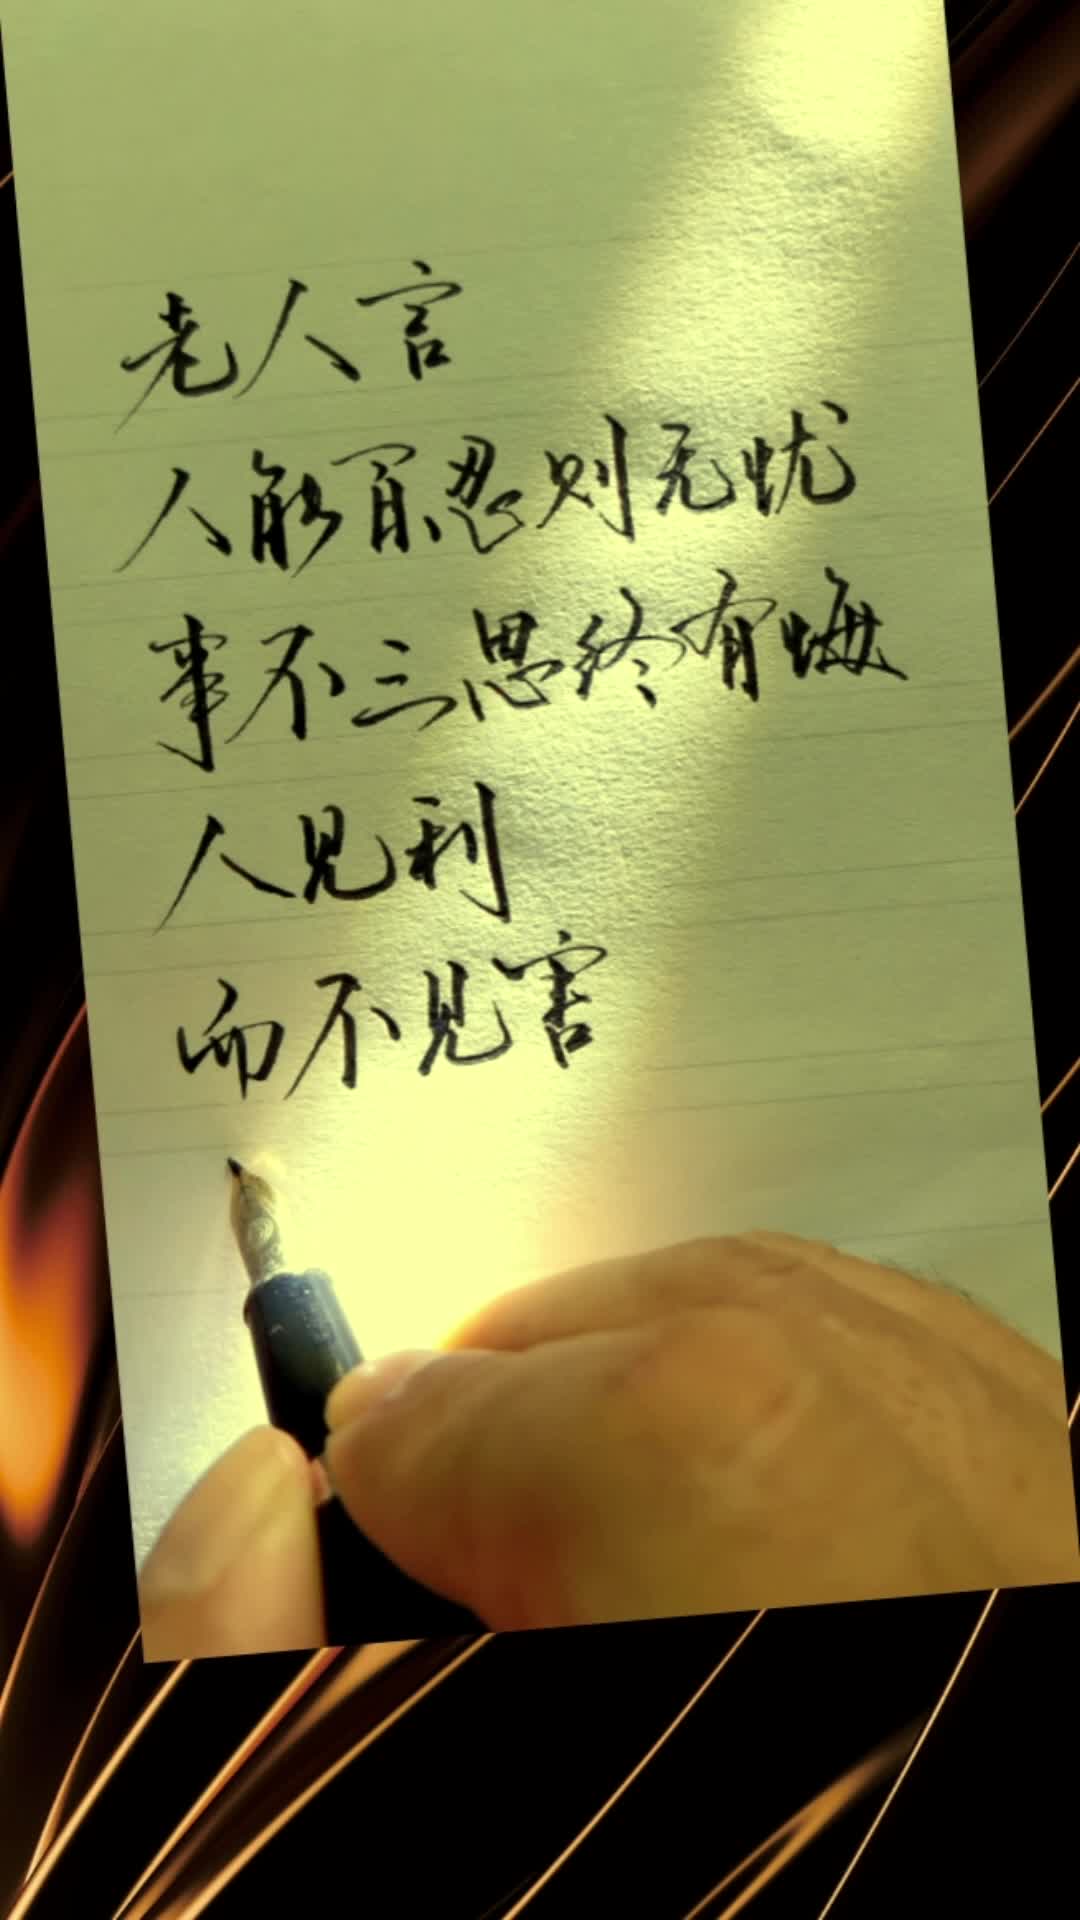 老人言
人能百忍则无忧
事不三思终有悔
人见利
而不见害